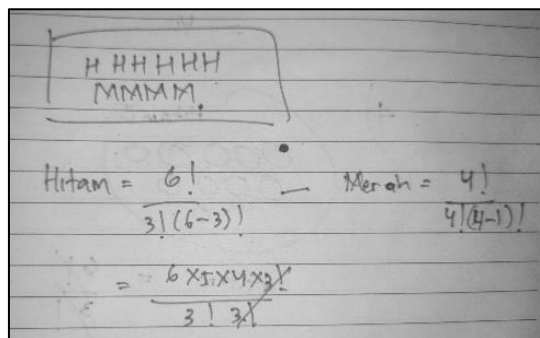 H H H H H H
M M M M
Hitam = 6! / 3!(6-3)! — Merah = 4! / 4!(4-1)!
= 6 x 5 x 4 x 3! / 3! 3!